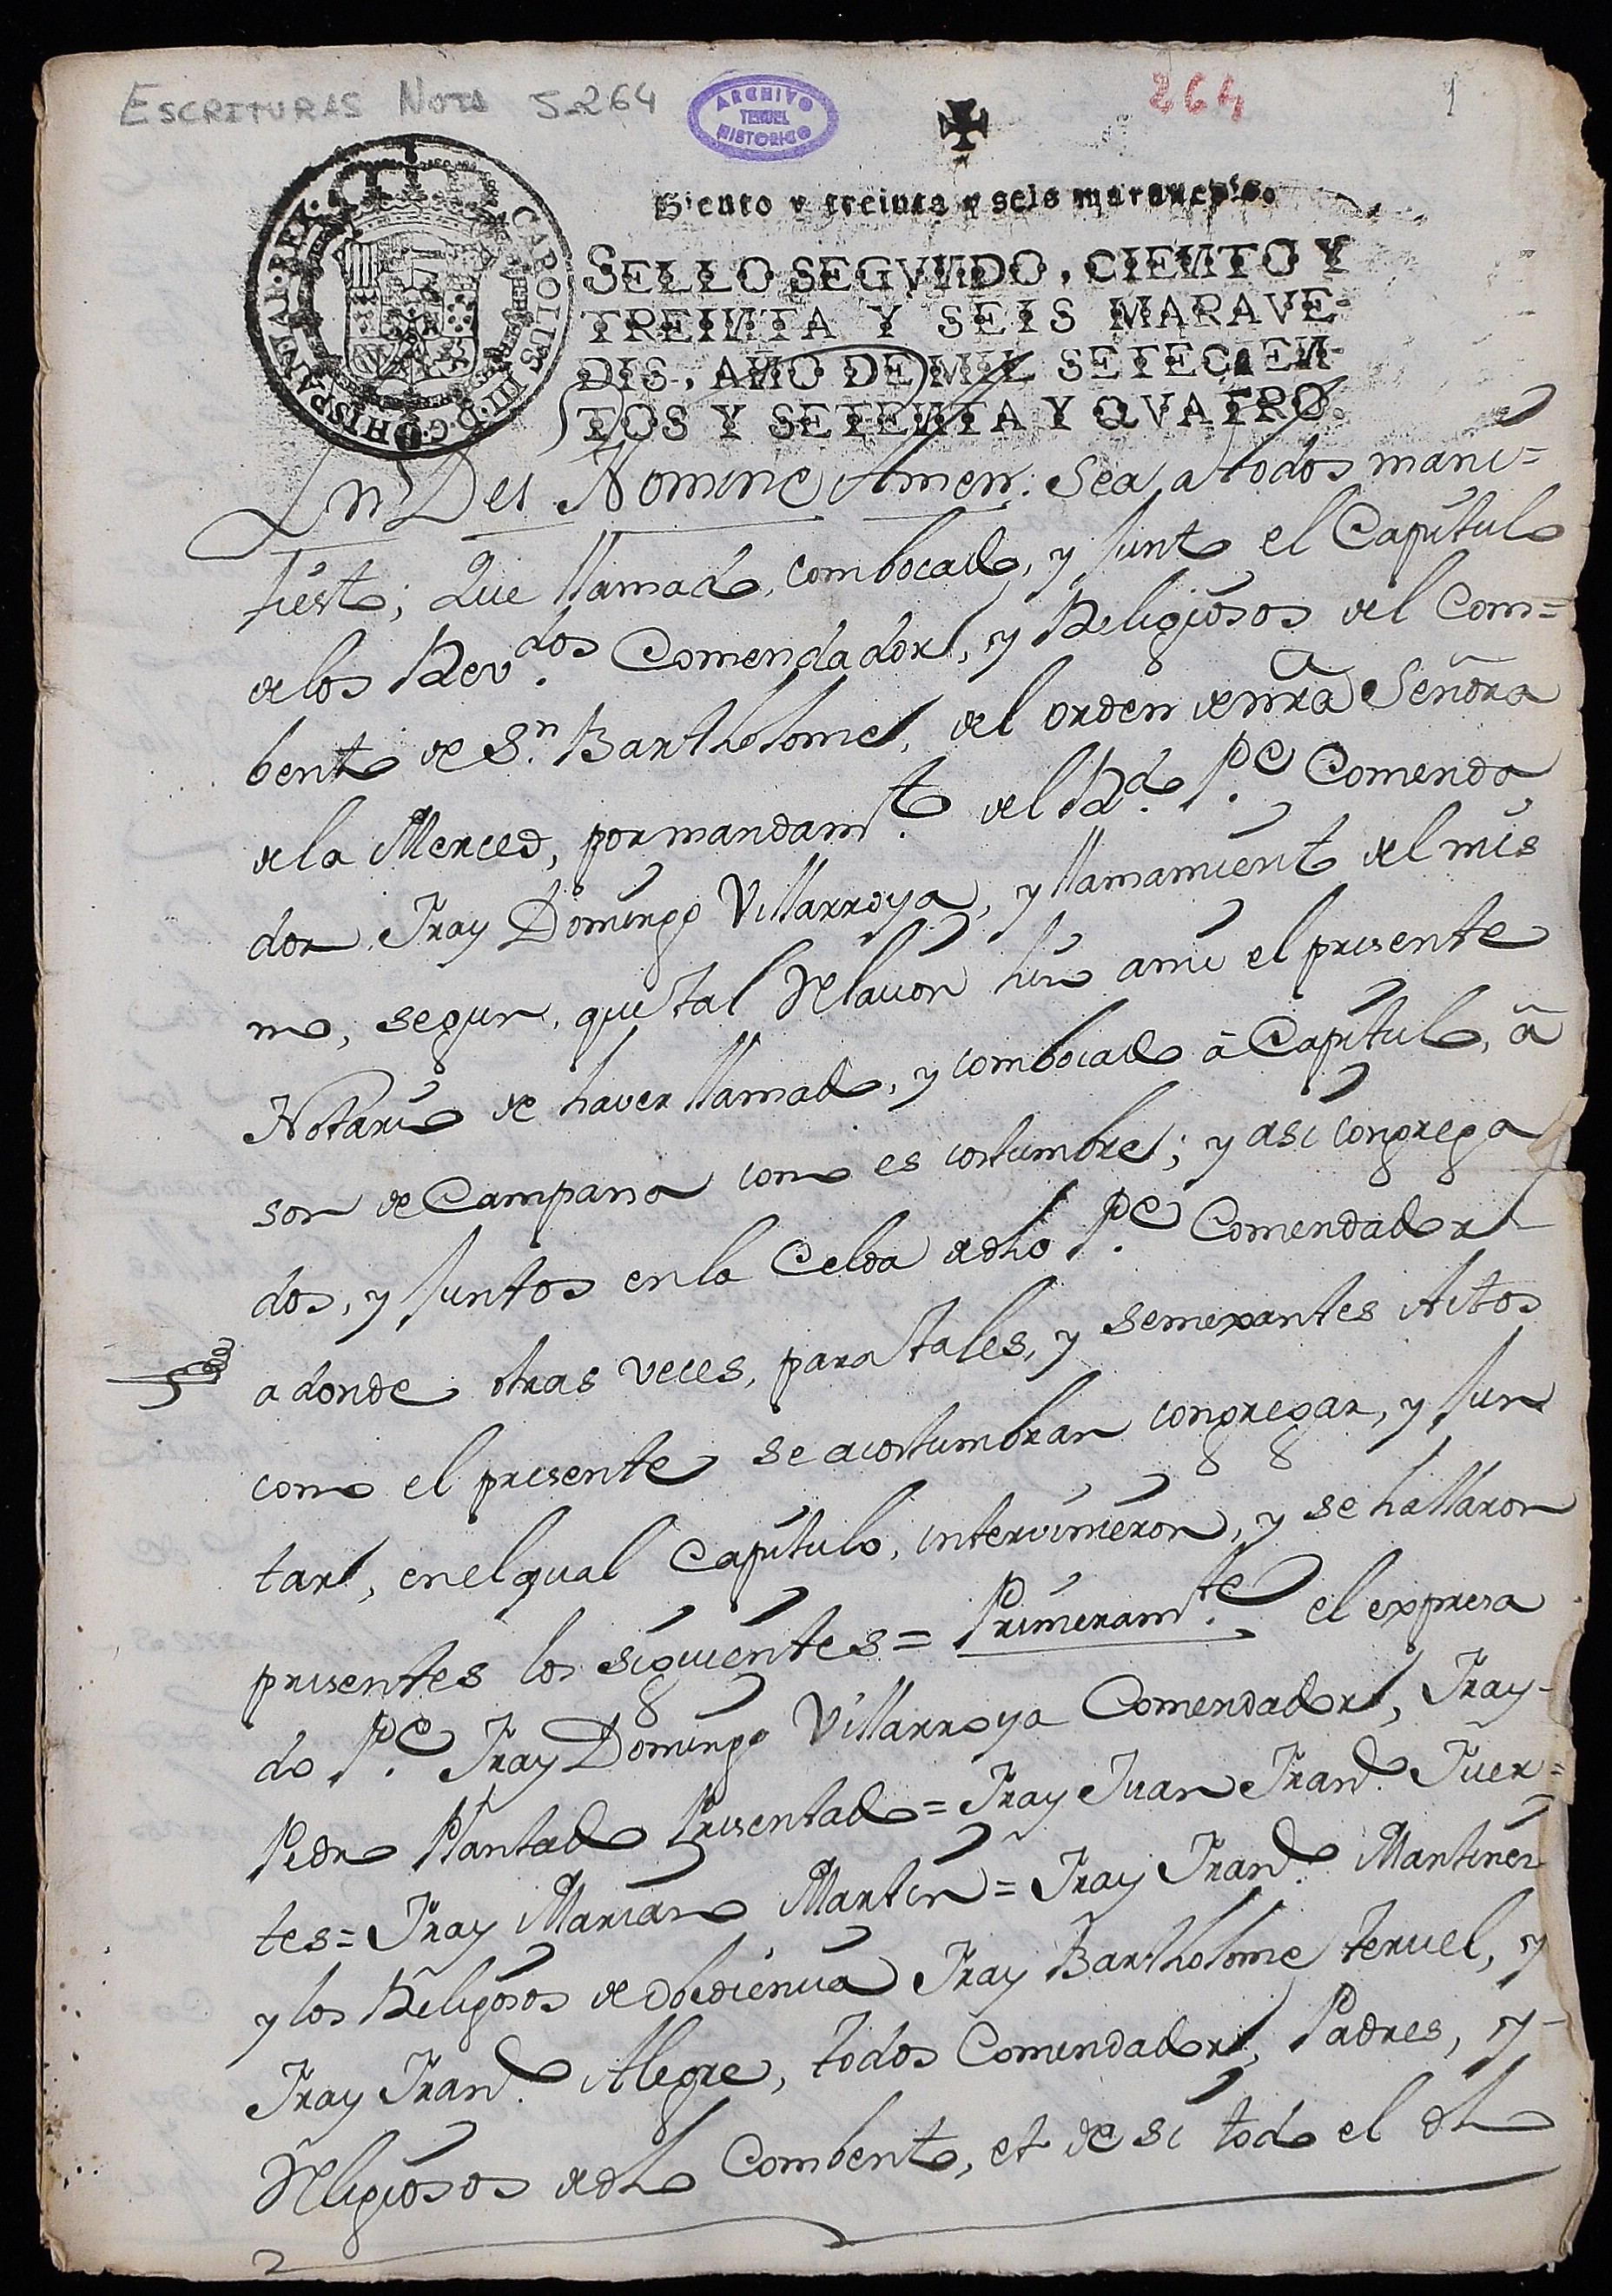 ESCRITURAS NOTA 5-264
ARCHIVO
TERUEL
HISTORICO
264
1
Siento y treinta y seis marauedis.
CAROLUS III D.G. HISPANIAR. REX.
SELLO SEGVNDO, CIENTO Y
TREINTA Y SEIS MARAVE-
DIS, AÑO DE MIL SETECIEN-
TOS Y SETENTA Y QVATRO.
In Dei Nomine Amen: Sea a todos mani=
fiesto; Que llamado, combocado, y Junto el Capitulo
de los Rev.dos Comendador, y Religiosos del Com=
bento de Sn. Bartholome, del orden de nra Señora
de la Merced, por mandamto. del Rdo. Pe. Comenda
dor Fray Domingo Villarroya, y llamamiento del mis
mo, segun, que tal Relacion hizo a mi el presente
Notario de haver llamado, y combocado â Capitulo, â
son de Campana como es costumbre; y asi congrega
dos, y Juntos en la Celda de dho Pe. Comendador
a donde otras veces, para tales, y semexantes Actos
como el presente se acostumbran congregar, y Jun
tar, en el qual Capitulo, intervinieron, y se hallaron
presentes los siguientes = Primeramte. el expresa
do Pe. Fray Domingo Villarroya Comendador, Fray
Pedro Plantado Presentado = Fray Juan Franco. Fuer=
tes = Fray Mariano Martin = Fray Franco. Martinez
y los Religiosos de obediencia Fray Bartholome Teruel, y
Fray Franco. Alegre, todos Comendador, Padres, y
Religiosos de dho Combento, et de si todo el dho